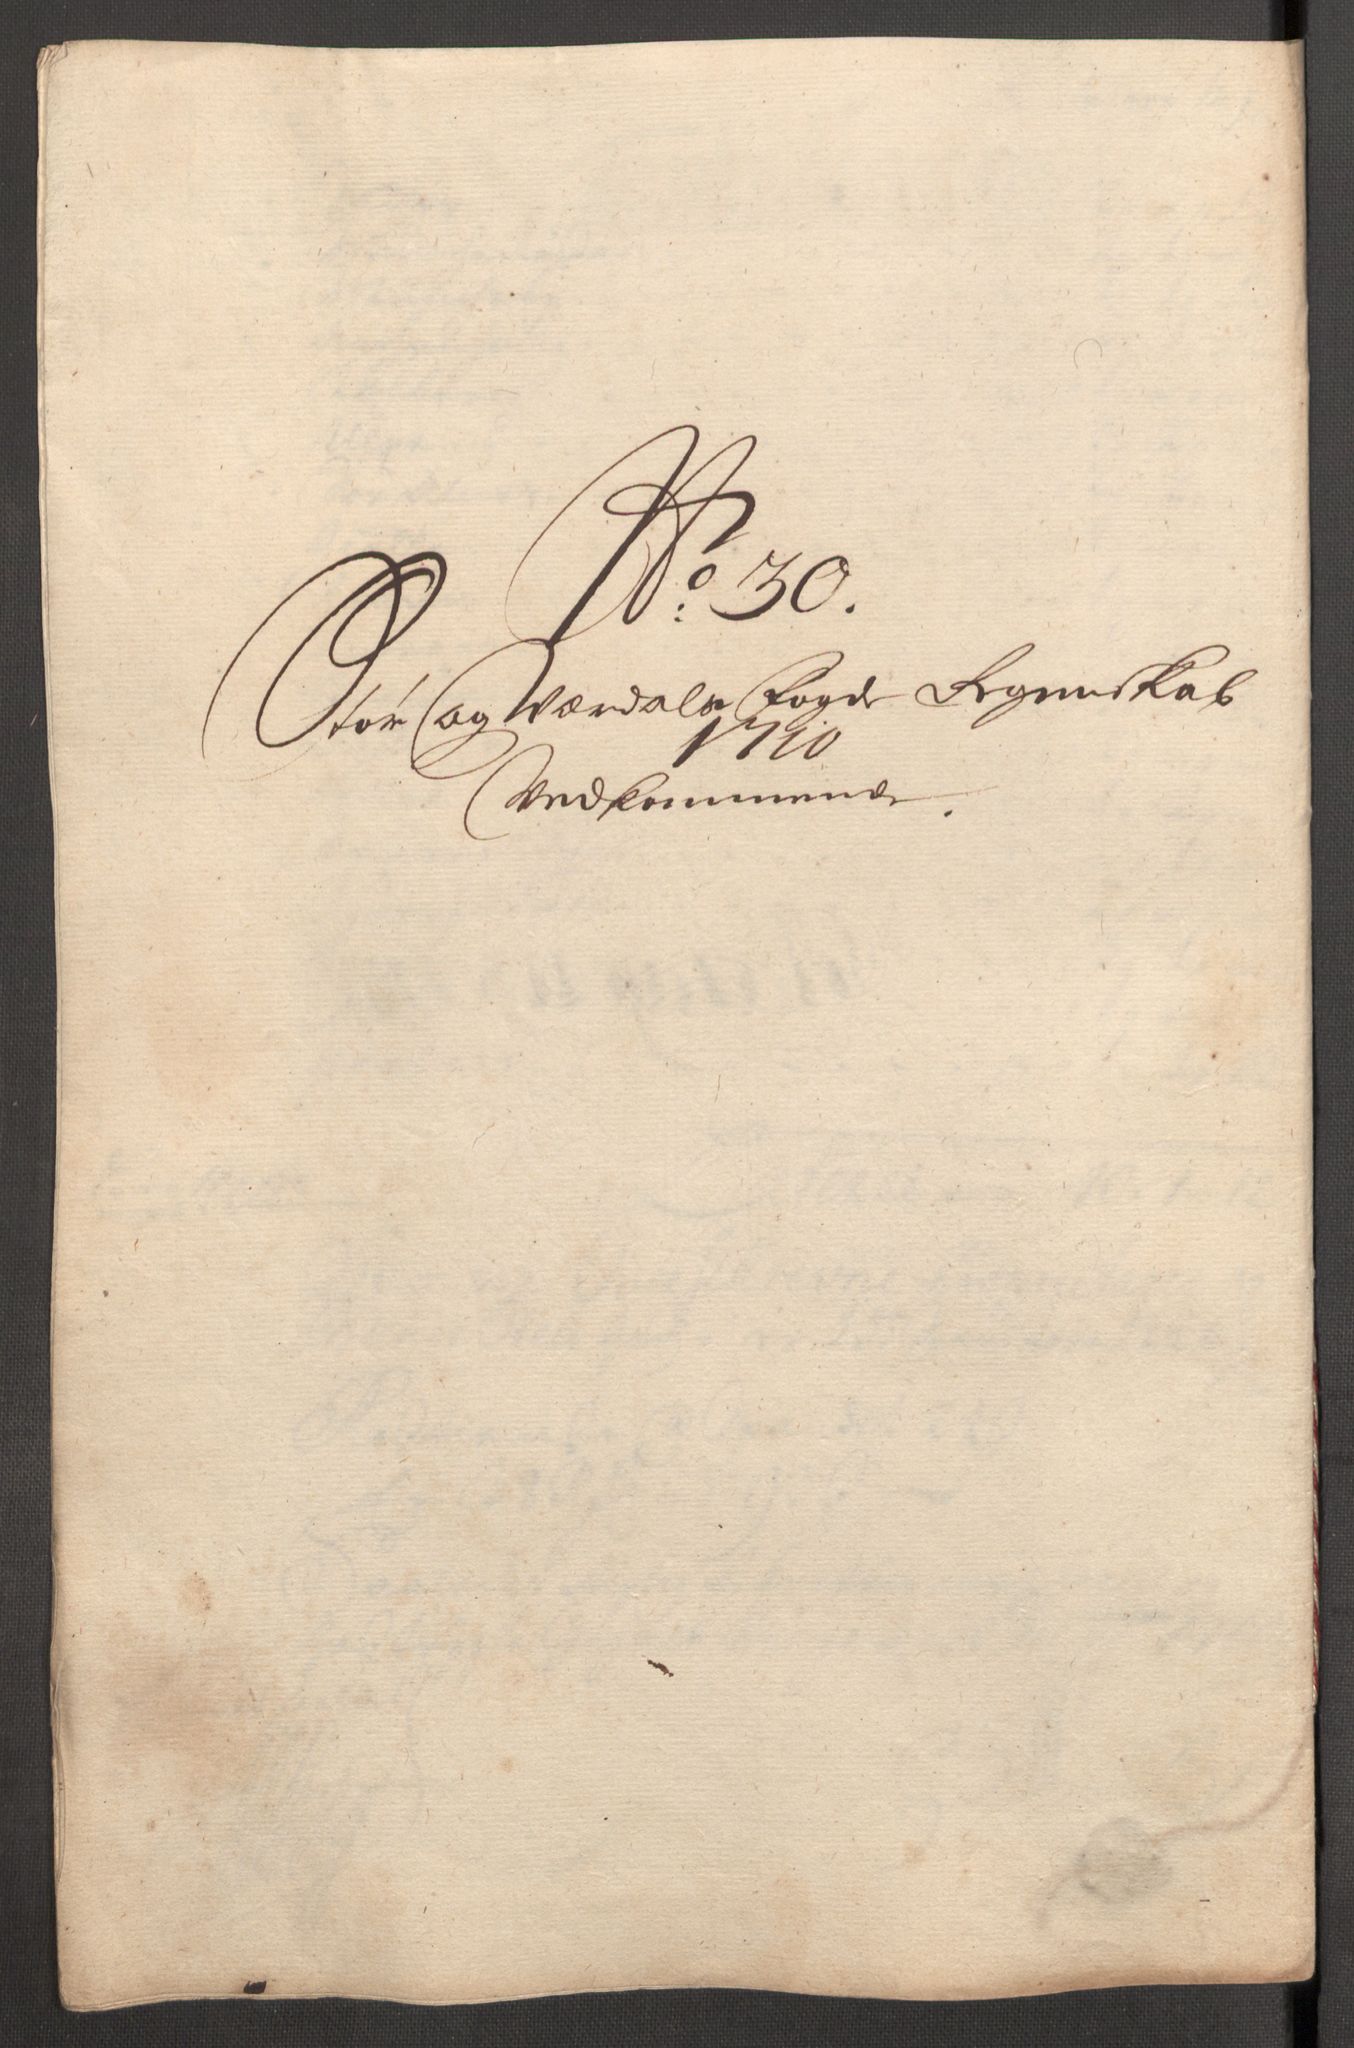 No: 30.
Stør og Værdals Fogde Regenskab
1710
Vedkommende.